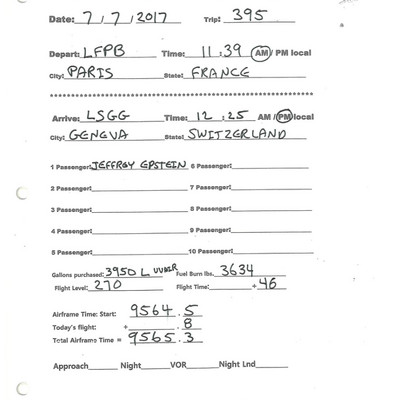 Date: 7 / 7 / 2017 Trip: 395
Depart: LFPB Time: 11:39 AM / PM local
City: PARIS State: FRANCE
Arrive: LSGG Time: 12:25 AM / PM local
City: GENEVA State: SWITZERLAND
1 Passenger: JEFFREY EPSTEIN 6 Passenger:
2 Passenger: 7 Passenger:
3 Passenger: 8 Passenger:
4 Passenger: 9 Passenger:
5 Passenger: 10 Passenger:
Gallons purchased: 3950 L Fuel Burn lbs. 3634
Flight Level: 270 Flight Time: + 46
Airframe Time: Start: 9564.5
Today's flight: + .8
Total Airframe Time = 9565.3
Approach Night VOR Night Lnd